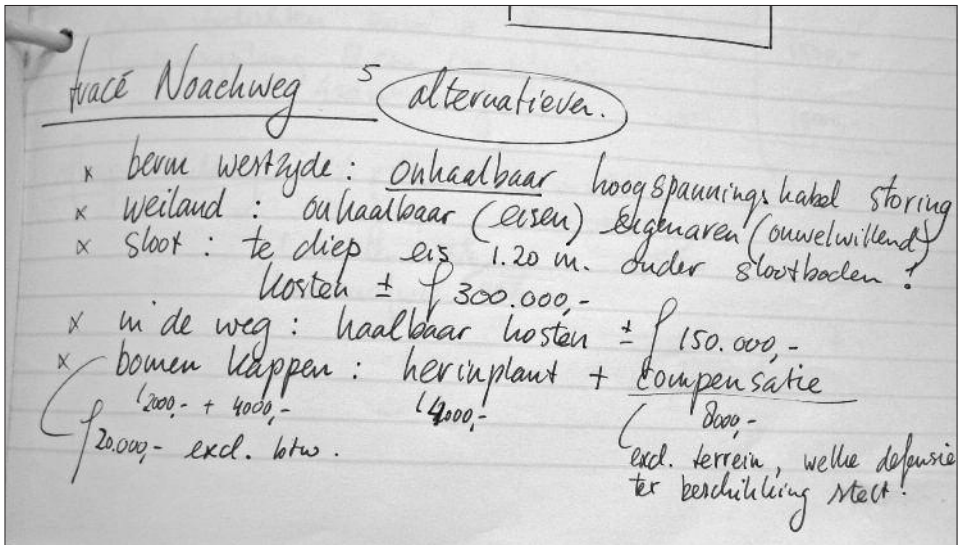 tracé Noachweg 5 alternatieven.
x berm westzijde : onhaalbaar hoogspanningskabel storing
x weiland : onhaalbaar (eisen) eigenaren (onwelwillend)
x sloot : te diep eis 1.20 m. onder slootbodem !
kosten ± ƒ 300.000,-
x in de weg : haalbaar kosten ± ƒ 150.000,-
x bomen kappen : herinplant + compensatie
2000,- + 4000,- 4000,- 8000,-
ƒ 20.000,- excl. btw.
excl. terrein, welke defensie
ter beschikking stelt !